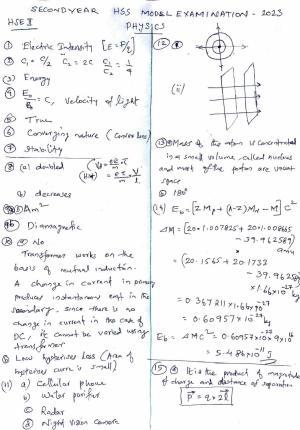 SECOND YEAR HSS MODEL EXAMINATION - 2023
HSE II
PHYSICS
① Electric Intensity [E = F/q]
② C₁ = C/2 C₂ = 2C C₁/C₂ = 1/4
③ Energy
④ E₀/B₀ = C, Velocity of light
⑤ True
⑥ Converging nature (Convex lens)
⑦ Stability
⑧ (a) doubled
(b) decreases
Am²
Diamagnetic
No
Transformer works on the
basis of mutual induction.
A change in current in primary
produce instantaneous emf in the
secondary, since there is no
change in current in the case of
DC, it cannot be varied using
transformer
⑥ Low hysteresis loss (Area of
hysteresis curve is small)
(11) a) Cellular phone
b) Water purifier
c) Radar
d) Night vision camera
(12)
(ii)
(13) Mass of the atom is concentrated
in a small volume, called nucleus
and most of the portion are vacant
space
⑥ 180°
(14) E_b = [Z M_p + (A-Z) M_n - M] C²
ΔM = (20×1.007825 + 20×1.008665
- 39.962589)
× amu
= (20.1565 + 20.1733
- 39.962589)
× 1.66×10⁻²⁷
= 0.367211×1.66×10⁻²⁷
= 0.60957×10⁻²⁷ kg
E_b = ΔMC² = 0.60957×10⁻²⁷×9×10¹⁶
= 5.486×10⁻¹¹ J
(15) It is the product of magnitude
of charge and distance of separation
P = q × 2l